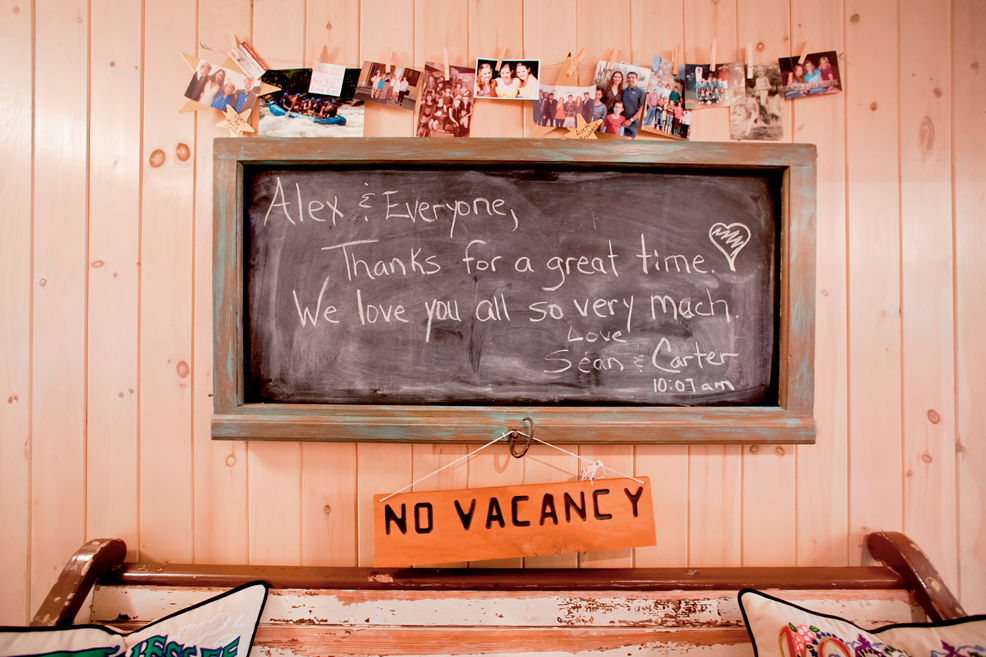 Alex & Everyone,
Thanks for a great time.
We love you all so very mach.
Love
Sean & Carter
10:07am
NO VACANCY